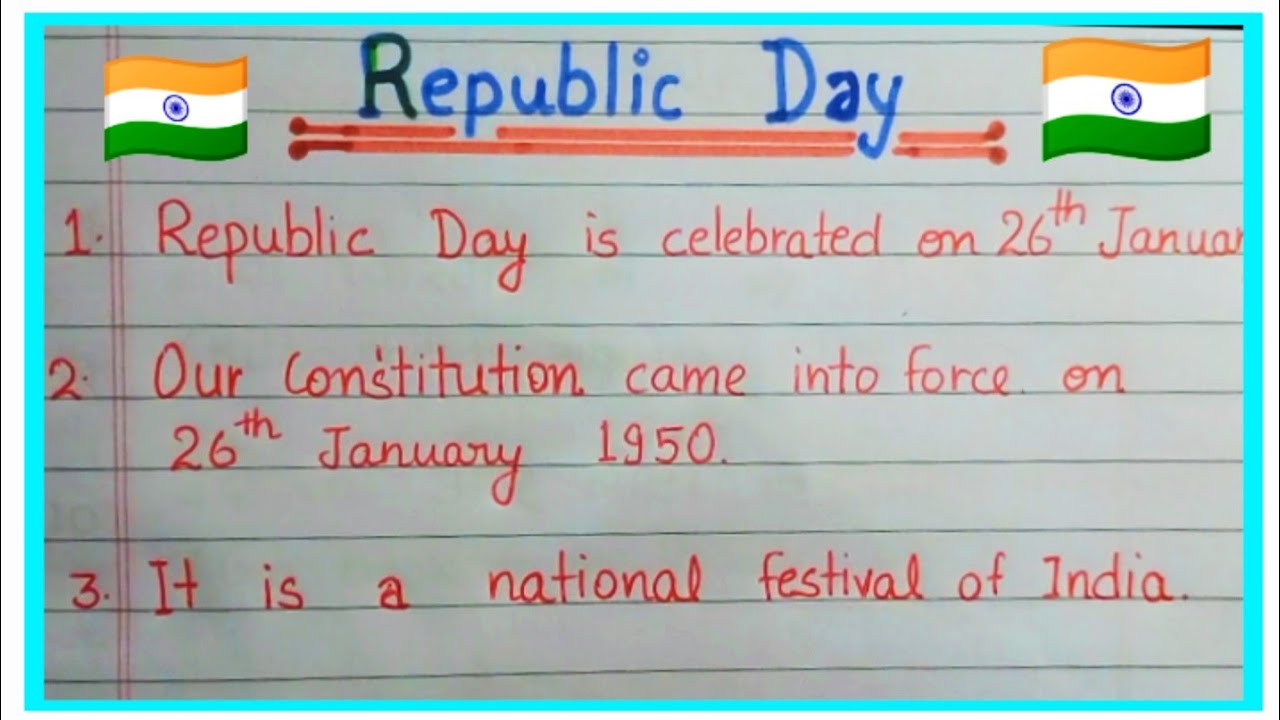 Republic Day
1. Republic Day is celebrated on 26th Januar
2. Our Constitution came into force on
26th January 1950.
3. It is a national festival of India.